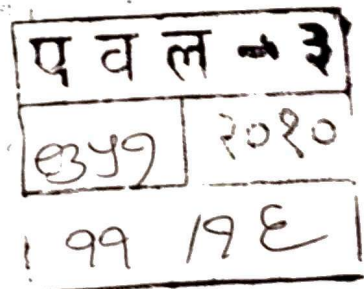 प व ल - ३
७५१ २०१०
११ /१६